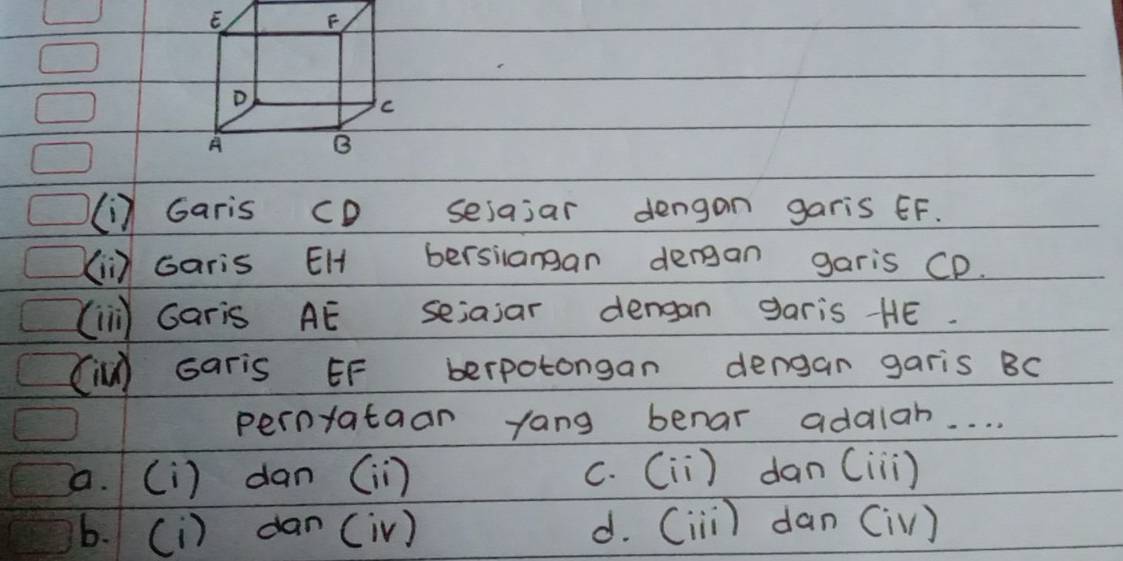 E F
D C
A B
(i) Garis CD sejajar dengan garis EF.
(ii) Garis EH bersilangan dengan garis CD.
(iii) Garis AE sejajar dengan garis HE.
(iv) Garis EF berpotongan dengan garis BC
Pernyataan yang benar adalah....
a. (i) dan (ii) c. (ii) dan (iii)
b. (i) dan (iv) d. (iii) dan (iv)